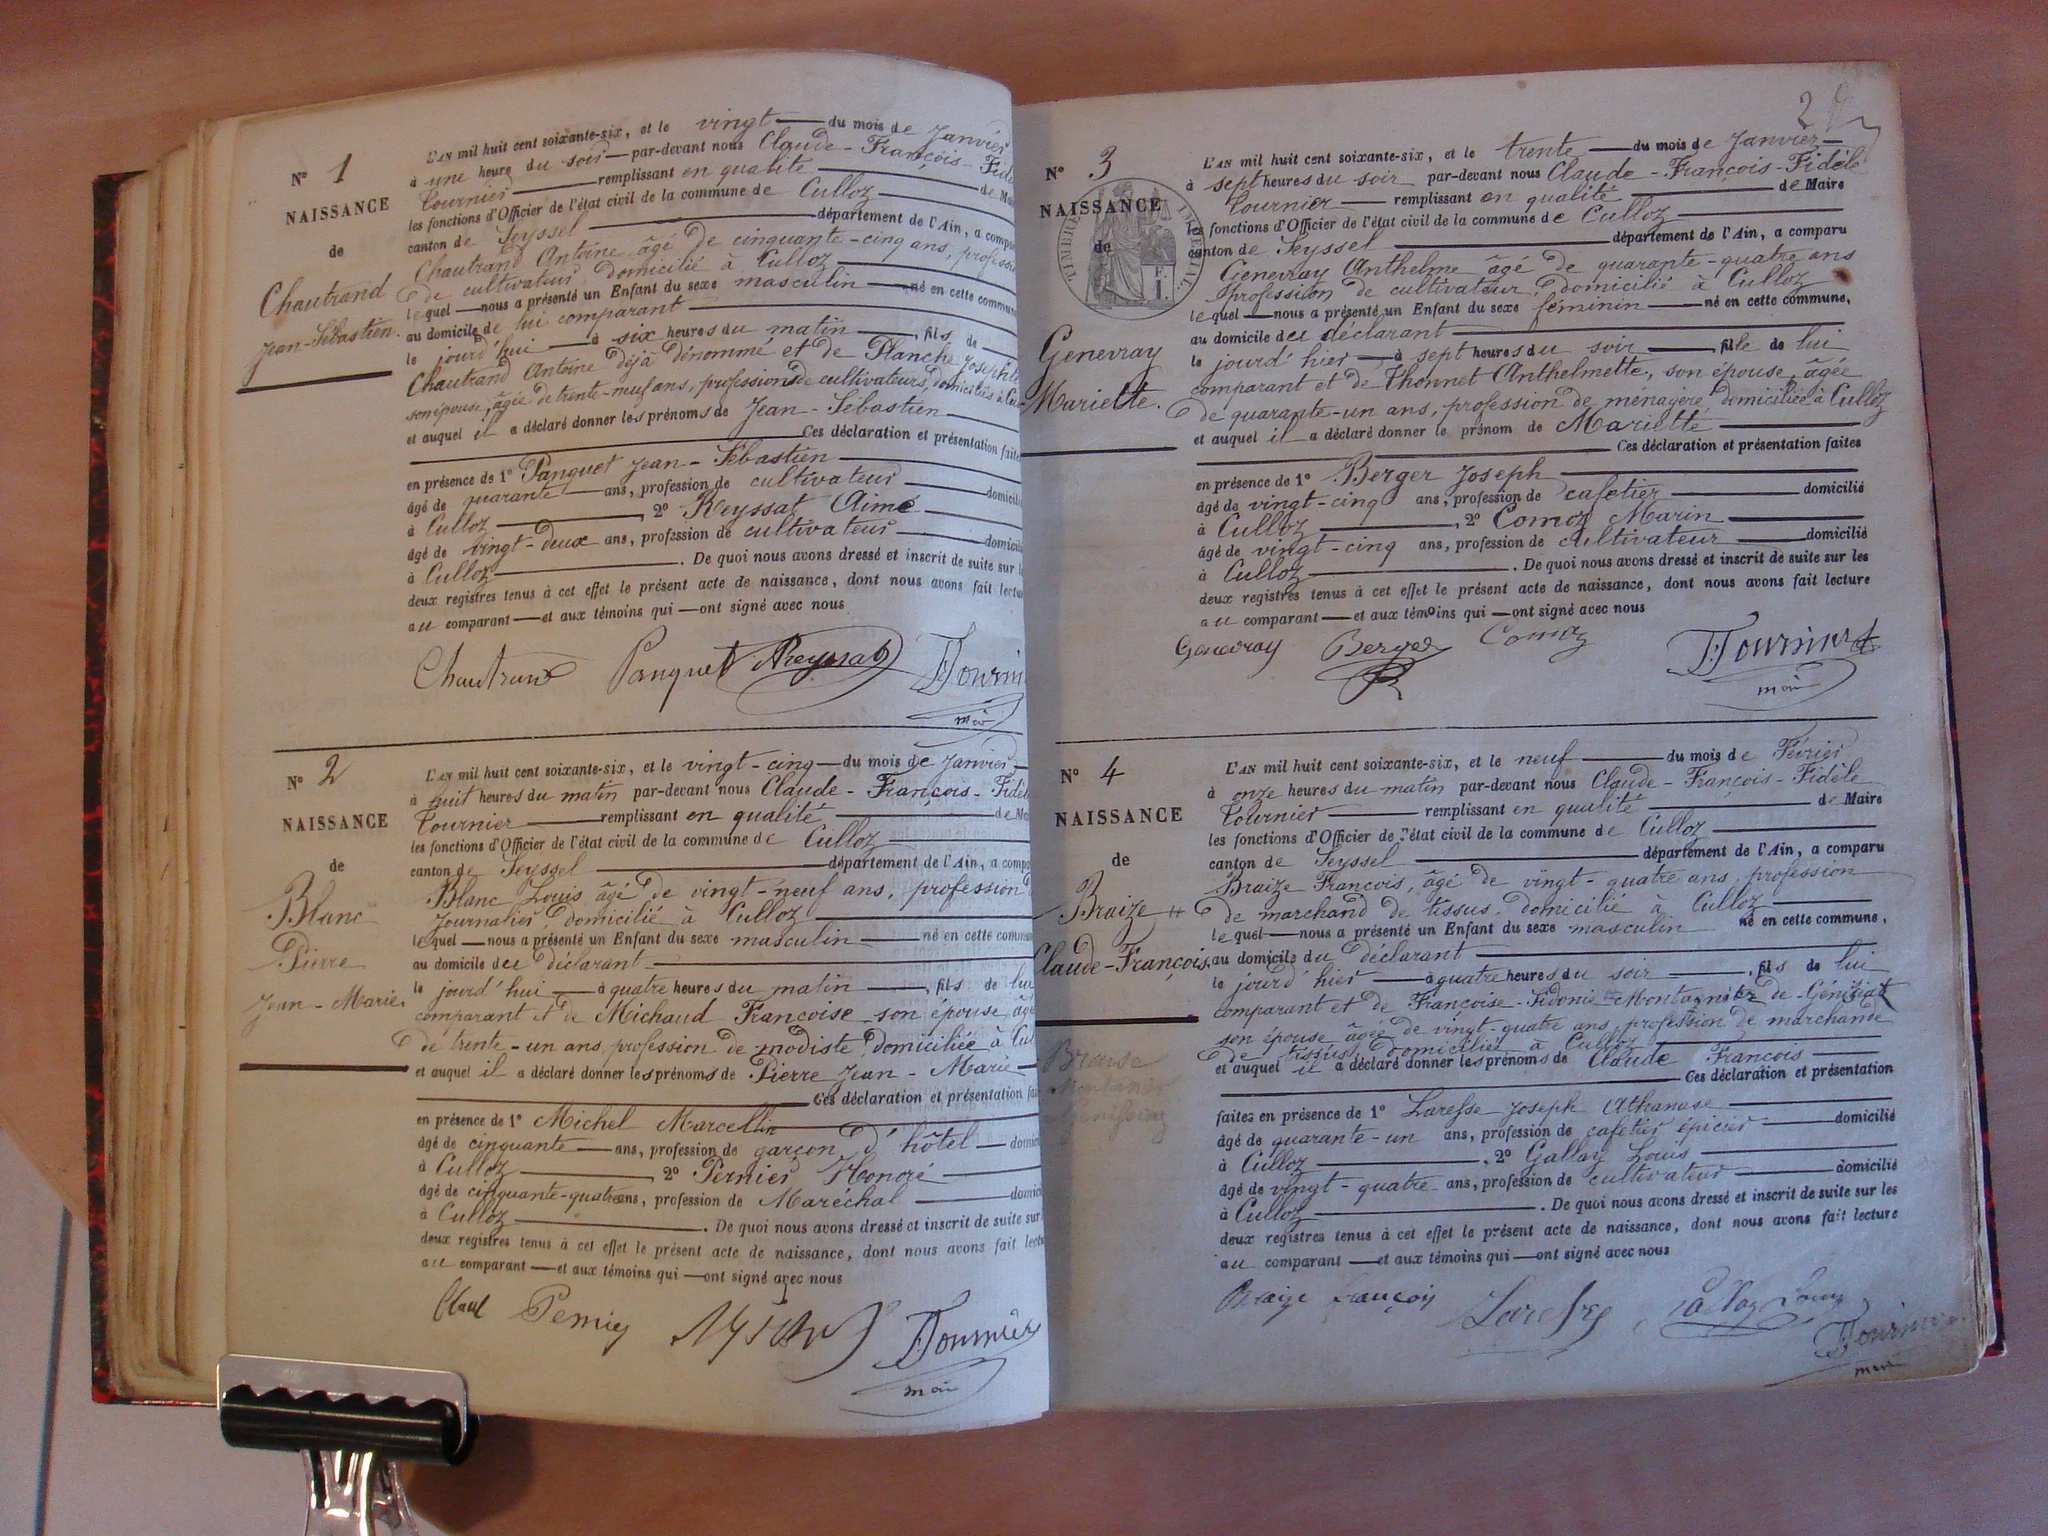 N° 1
NAISSANCE
de
Chautrand
Jean-Sébastien.
L'AN mil huit cent soixante-six, et le vingt du mois de Janvier
à une heure du soir par-devant nous Claude-François-Fidè
Tournier remplissant en qualité de Ma
les fonctions d'Officier de l'état civil de la commune de Culloz
canton de Seyssel département de l'Ain, a compa
Chautrand Antoine âgé de cinquante-cinq ans, professi
de cultivateur, domicilié à Culloz
lequel nous a présenté un Enfant du sexe masculin né en cette commune
au domicile de lui comparant
le jourd'hui à six heures du matin, fils de
Chautrand Antoine déjà dénommé et de Planche Josephte
son épouse, âgée de trente-neuf ans, profession de cultivateurs, domiciliés à Cu
et auquel il a déclaré donner les prénoms de Jean-Sébastien
Ces déclaration et présentation faites
en présence de 1° Panguet Jean-Sébastien
âgé de quarante ans, profession de cultivateur domicilié
à Culloz, 2° Reyssat Aimé
âgé de vingt-deux ans, profession de cultivateur domicilié
à Culloz. De quoi nous avons dressé et inscrit de suite sur l
deux registres tenus à cet effet le présent acte de naissance, dont nous avons fait lectur
au comparant et aux témoins qui ont signé avec nous
Chautrand Panguet Reyssat Tourni
N° 2
NAISSANCE
de
Blanc
Pierre
Jean-Marie.
L'AN mil huit cent soixante-six, et le vingt-cinq du mois de Janvier
à huit heures du matin par-devant nous Claude-François-Fidèl
Tournier remplissant en qualité de Ma
les fonctions d'Officier de l'état civil de la commune de Culloz
canton de Seyssel département de l'Ain, a compa
Blanc Louis âgé de vingt-neuf ans, profession
Journalier, domicilié à Culloz
lequel nous a présenté un Enfant du sexe masculin né en cette commun
au domicile du déclarant
le jourd'hui à quatre heures du matin, fils de lui
comparant et de Michaud Françoise son épouse, âgé
de trente-un ans, profession de modiste, domiciliée à Cul
et auquel il a déclaré donner les prénoms de Pierre Jean-Marie
Ces déclaration et présentation fai
en présence de 1° Michel Marcellin
âgé de cinquante ans, profession de garçon d'hôtel domici
à Culloz, 2° Pernier Honoré
âgé de cinquante-quatre ans, profession de Maréchal domici
à Culloz. De quoi nous avons dressé et inscrit de suite sur
deux registres tenus à cet effet le présent acte de naissance, dont nous avons fait lect
au comparant et aux témoins qui ont signé avec nous
Tournier
2
N° 3
NAISSANCE
de
TIMBRE IMPERIAL
Genevray
Mariette.
L'AN mil huit cent soixante-six, et le trente du mois de Janvier
à sept heures du soir par-devant nous Claude-François-Fidèle
Tournier remplissant en qualité de Maire
les fonctions d'Officier de l'état civil de la commune de Culloz
canton de Seyssel département de l'Ain, a comparu
Genevray Anthelme âgé de quarante-quatre ans
profession de cultivateur, domicilié à Culloz
lequel nous a présenté un Enfant du sexe féminin né en cette commune,
au domicile du déclarant
le jourd'hier à sept heures du soir, fille de lui
comparant et de Thonnet Anthelmette, son épouse, âgée
de quarante-un ans, profession de ménagère, domiciliée à Culloz
et auquel il a déclaré donner le prénom de Mariette
Ces déclaration et présentation faites
en présence de 1° Berger Joseph
âgé de vingt-cinq ans, profession de cafetier domicilié
à Culloz, 2° Comoz Marin
âgé de vingt-cinq ans, profession de cultivateur domicilié
à Culloz. De quoi nous avons dressé et inscrit de suite sur les
deux registres tenus à cet effet le présent acte de naissance, dont nous avons fait lecture
au comparant et aux témoins qui ont signé avec nous
Genevray Berger Comoz Tournier
N° 4
NAISSANCE
de
Braize
Claude-François.
L'AN mil huit cent soixante-six, et le neuf du mois de Février
à onze heures du matin par-devant nous Claude-François-Fidèle
Tournier remplissant en qualité de Maire
les fonctions d'Officier de l'état civil de la commune de Culloz
canton de Seyssel département de l'Ain, a comparu
Braize François, âgé de vingt-quatre ans, profession
de marchand de tissus, domicilié à Culloz
lequel nous a présenté un Enfant du sexe masculin né en cette commune,
au domicile du déclarant
le jourd'hier à quatre heures du soir, fils de lui
comparant et de Françoise-Sidonie Montagnier de Génissiat
son épouse âgée de vingt-quatre ans, profession de marchande
de tissus, domiciliée à Culloz
et auquel il a déclaré donner les prénoms de Claude François
Ces déclaration et présentation
faites en présence de 1° Laresse Joseph Athanase
âgé de quarante-un ans, profession de cafetier épicier domicilié
à Culloz, 2° Gallay Louis
âgé de vingt-quatre ans, profession de cultivateur domicilié
à Culloz. De quoi nous avons dressé et inscrit de suite sur les
deux registres tenus à cet effet le présent acte de naissance, dont nous avons fait lecture
au comparant et aux témoins qui ont signé avec nous
Braize François Laresse Gallay Louis
Tournier